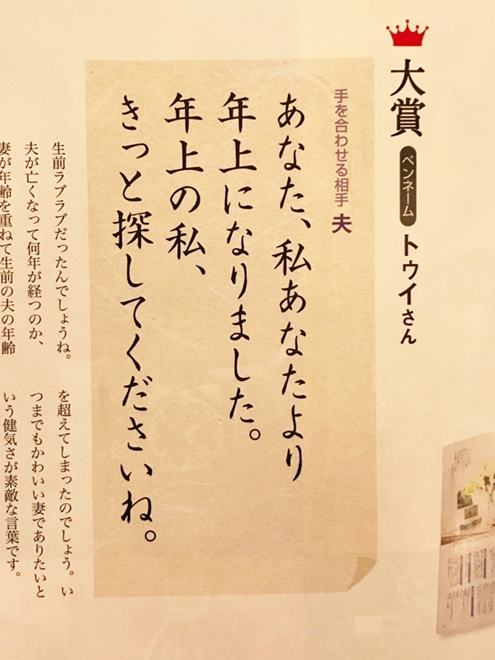 大賞 ペンネーム トゥイさん
手を合わせる相手 夫
あなた、私あなたより
年上になりました。
年上の私、
きっと探してくださいね。
生前ラブラブだったんでしょうね。
夫が亡くなって何年が経つのか、
妻が年齢を重ねて生前の夫の年齢
を超えてしまったのでしょう。い
つまでもかわいい妻でありたいと
いう健気さが素敵な言葉です。